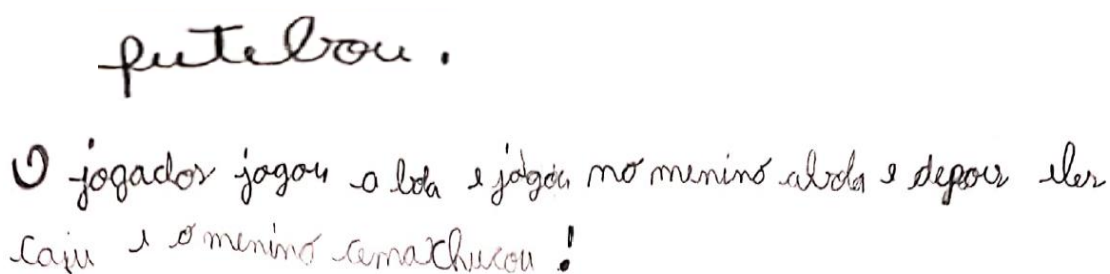 futebou.
O jogador jogou a bola e jogou no menino abola e depois eles
caiu e o menino cemaxhucou!